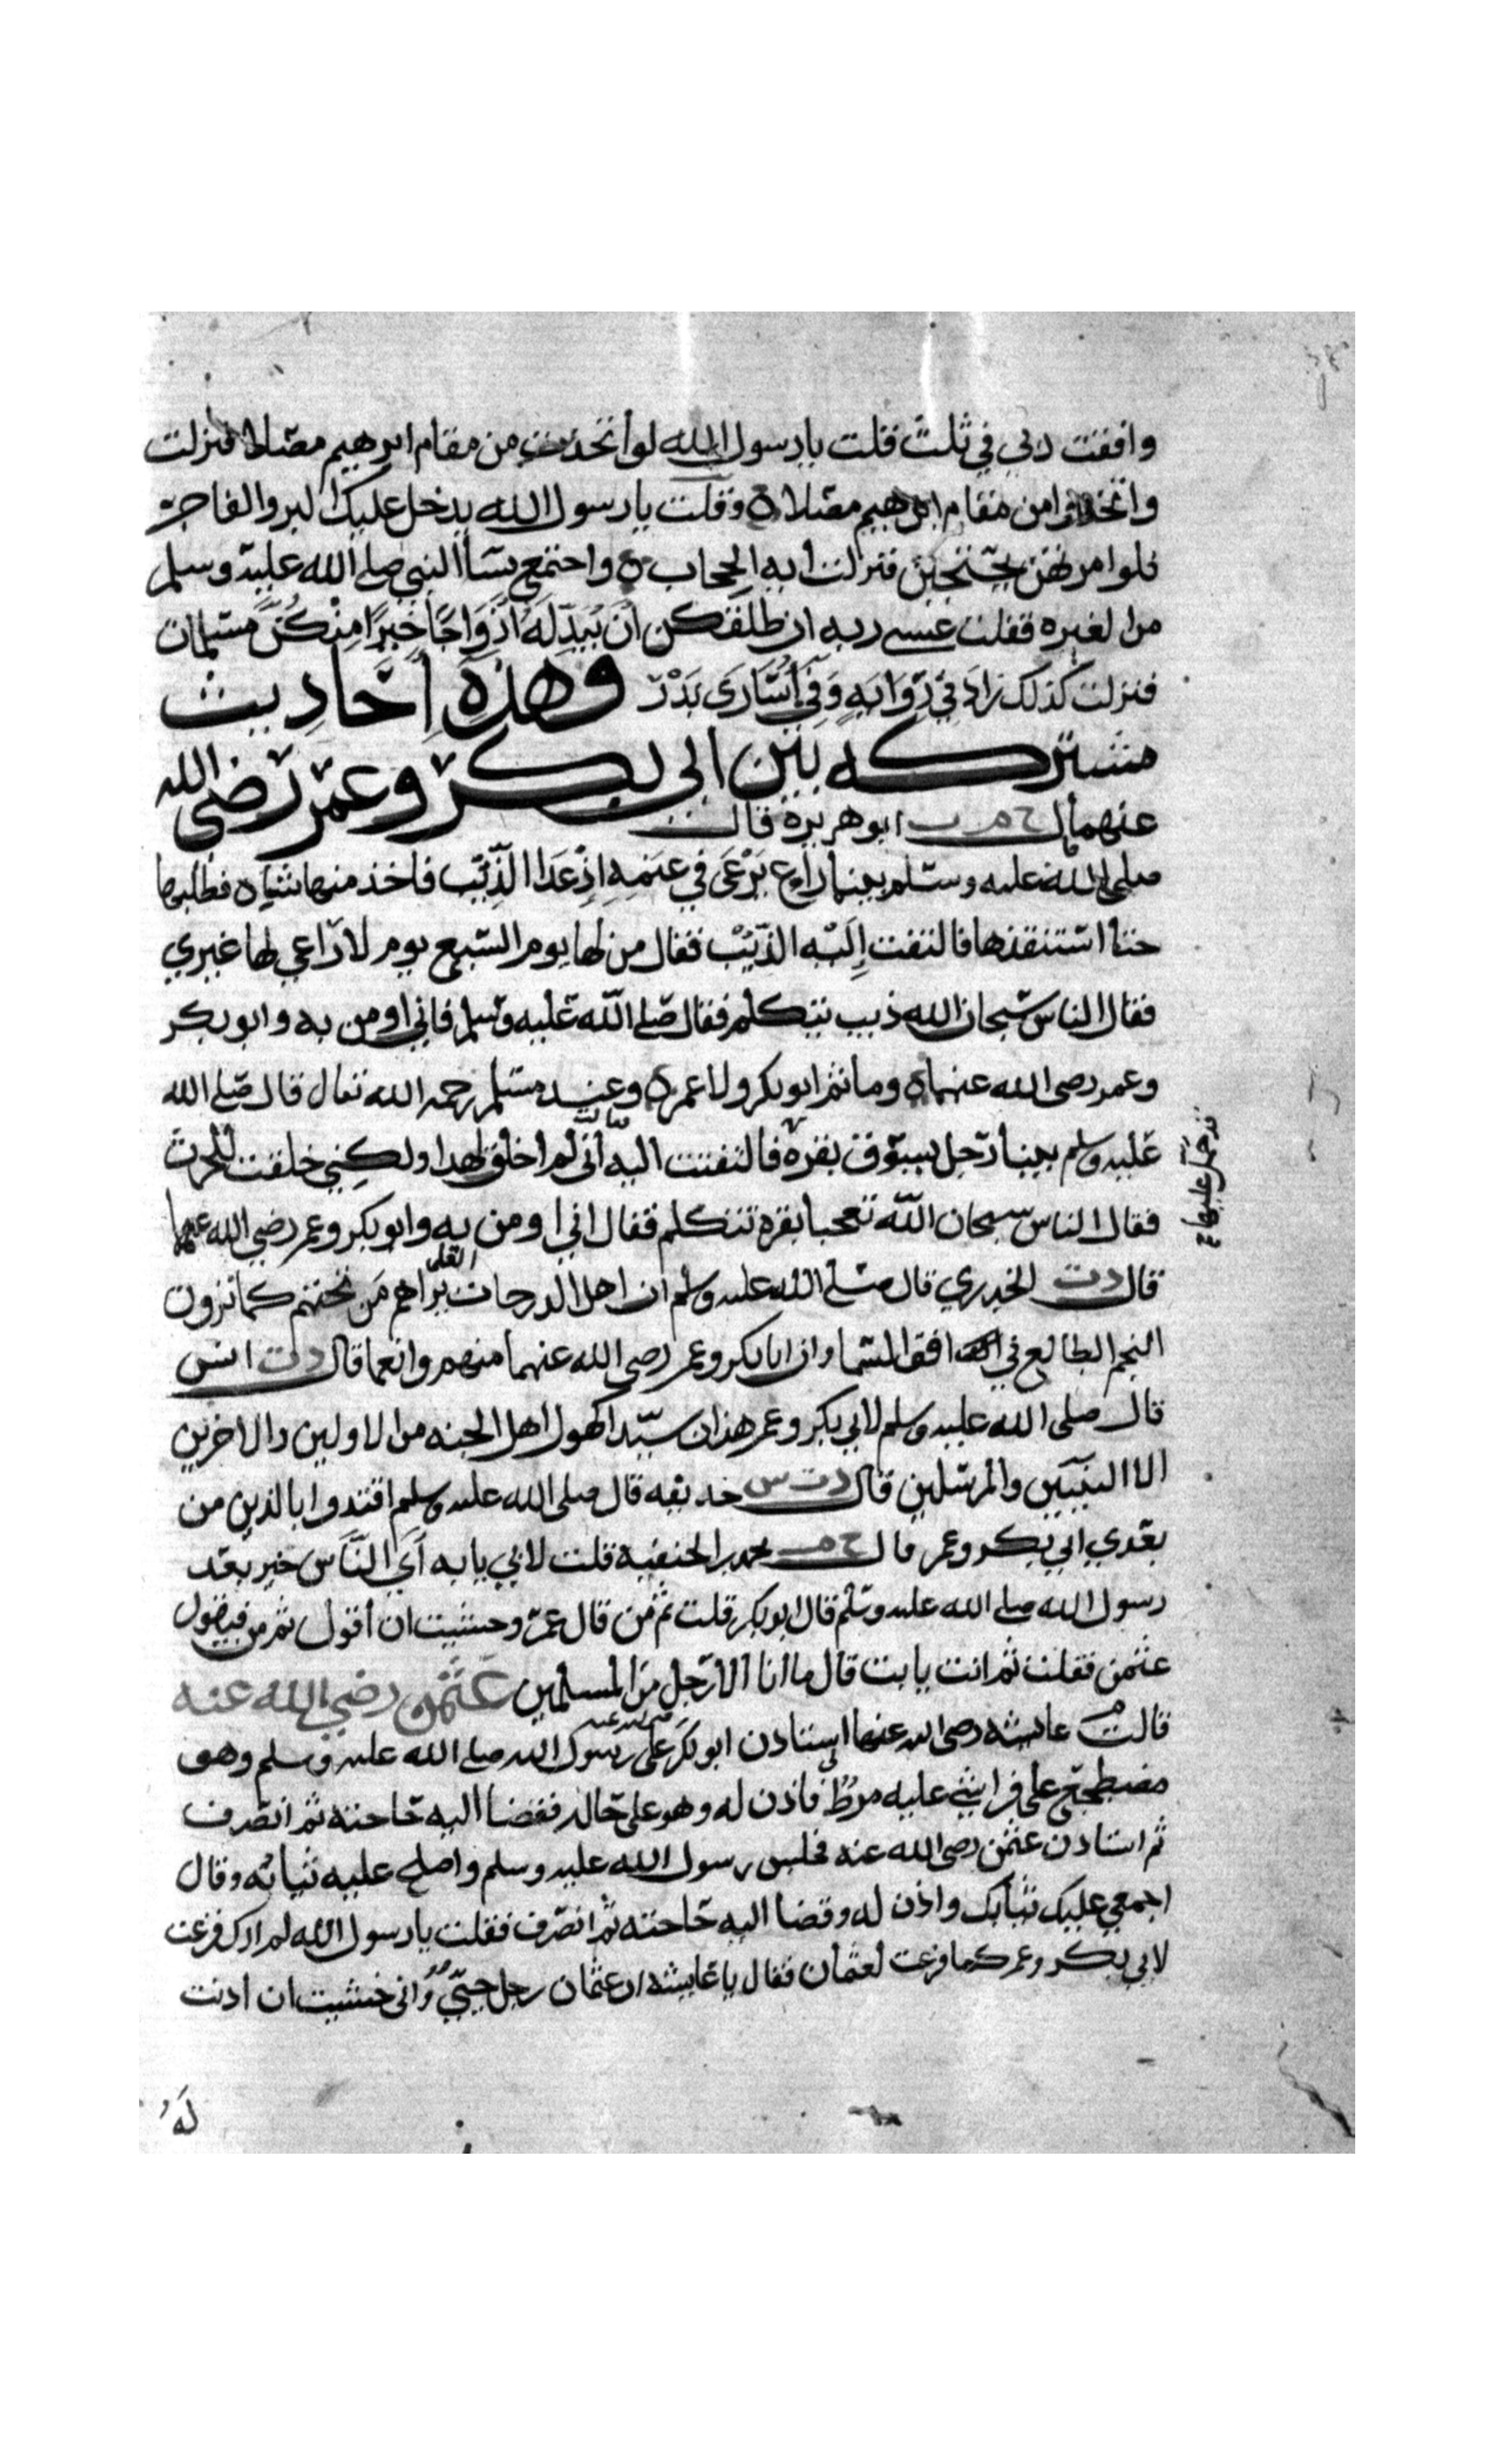 وافقت ربي في ثلث قلت يا رسول الله لو اتخذت من مقام ابرهيم مصلا فنزلت
واتخذوا من مقام ابرهيم مصلا ه وقلت يا رسول الله يدخل عليك البر والفاجر
فلو امرتهن يحتجبن فنزلت أية الحجاب ه واجتمع نسأ النبي صلى الله عليه وسلم
من الغيره فقلت عسى ربه ان طلقكن أَن يُبَدِّلَهُ أَزْوَاجًا خَيرًا مِنْكُنَّ مسلمات
فنزلت كذلك زاد في رِوَايَهٍ وَفي أُسَارَى بَدْر وهذه أحاديث
مشتركه بين ابي بكر وعمر رضي الله
عنهما ح م ت ابو هريرة قال
صلى الله عليه وسلم بينما راع يَرْعَى في غنمِهِ إذ عَدَا الذِّئب فاخذ منها شاه فطلبها
حتا استنقذها فالتفت إليه الذئب فقال من لها يوم السبع يوم لا راعي لها غيري
فقال الناس سبحان الله ذيب يتكلم فقال صلى الله عليه وسلم فاني اومن به وابو بكر
وعمر رضى الله عنهما ه وما ثم ابو بكر ولا عمر ه وعند مسلم رحمه الله تعال قال صلى الله
عليه وسلم بينما رجل يسوق بقره فالتفتت اليه
فقالت
أنى لم اخلق لهدا ولكني خلقت للحرث
قد حمل عليها ح
فقال الناس سبحان الله تعجبا بقره تتكلم فقال اني اومن به وابو بكر وعمر رضي الله عنهما
قال د ت الخدري قال صلى الله عليه وسلم ان اهل الدرجات
العلى
يراهم من تحتهم كما ترون
النجم الطالع في افق السما وان ابا بكر وعمر رضى الله عنهما منهم وانعما قال د ت انس
قال صلى الله عليه وسلم لابي بكر وعمر هذان سيدا كهول اهل الجنه من الاولين والاخرين
الا النبيين والمرسلين قال د ت س حذيفه قال صلى الله عليه وسلم اقتدوا بالذين من
بعدي ابي بكر وعمر قال ح م محمد بن الحنفيه قلت لابي يا به أي الناس خير بعد
رسول الله صلى الله عليه وسلم قال ابو بكر قلت ثم من قال عمر وخشيت ان أقول ثم من فيقول
عثمن فقلت ثم انت يا بت قال ما انا الا رجل من المسلمين عثمن رضي الله عنه
قالت م عايشه رضى الله عنها استادن ابو بكر على رسول الله صلى الله عليه وسلم وهو
مضطجع على فراشي عليه مرط فاذن له وهو على حاله فقضا اليه حاجته ثم انصرف
ثم استادن عثمن رضى الله عنه فجلس رسول الله عليه وسلم واصلح عليه ثيابه وقال
اجمعي عليك ثيابك واذن له وقضا اليه حاجته ثم انصرف فقلت يا رسول الله لم ارك فزعت
لابي بكر وعمر كما فزعت لعثمان فقال يا عايشه ان عثمان رجل حيي واني خشيت ان اذنت
له